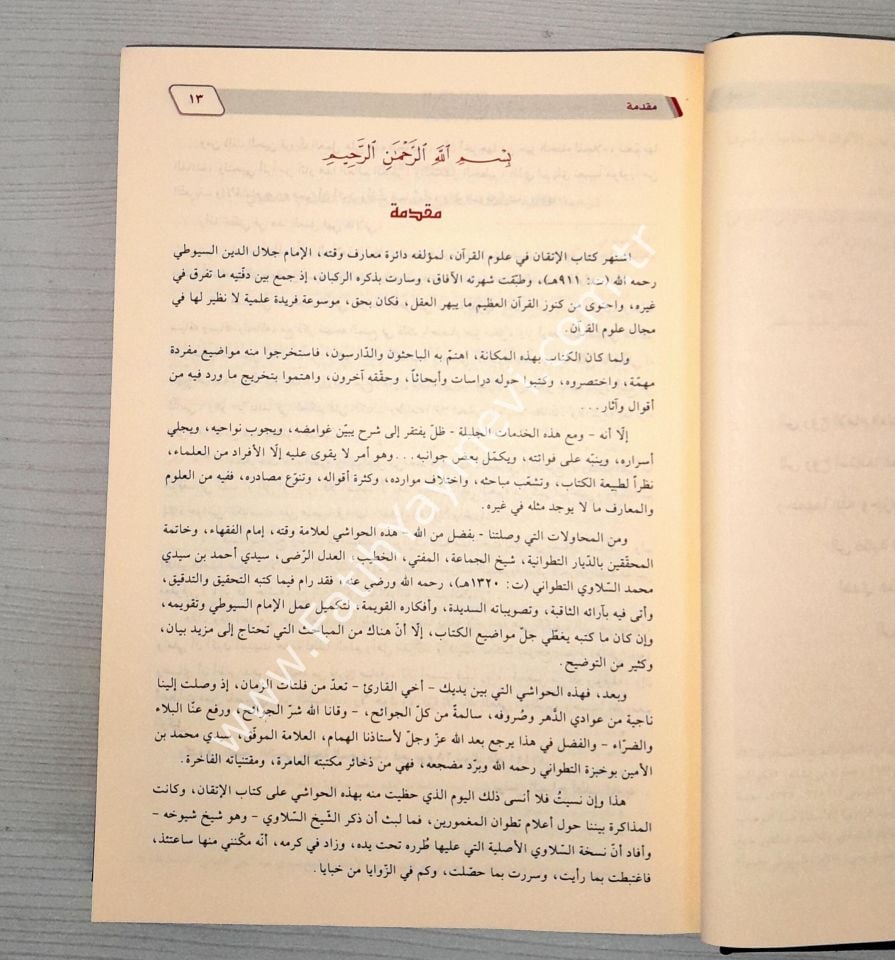 مقدمة
١٣
بِسْمِ اللَّهِ الرَّحْمَٰنِ الرَّحِيمِ
مقدمة
اشتهر كتاب الإتقان في علوم القرآن، لمؤلفه دائرة معارف وقته، الإمام جلال الدين السيوطي
رحمه الله (ت: ٩١١هـ)، وطبّقت شهرته الآفاق، وسارت بذكره الركبان، إذ جمع بين دفّتيه ما تفرق في
غيره، واحتوى من كنوز القرآن العظيم ما يبهر العقل، فكان بحق، موسوعة فريدة علمية لا نظير لها في
مجال علوم القرآن.
ولما كان الكتاب بهذه المكانة، اهتمّ به الباحثون والدّارسون، فاستخرجوا منه مواضيع مفردة
مهمّة، واختصروه، وكتبوا حوله دراسات وأبحاثاً، وحقّقه آخرون، واهتموا بتخريج ما ورد فيه من
أقوال وآثار...
إلّا أنه - ومع هذه الخدمات الجليلة - ظلّ يفتقر إلى شرح يبيّن غوامضه، ويجوب نواحيه، ويجلي
أسراره، وينبّه على فوائته، ويكمّل بعض جوانبه...وهو أمر لا يقوى عليه إلّا الأفراد من العلماء،
نظراً لطبيعة الكتاب، وتشعّب مباحثه، واختلاف موارده، وكثرة أقواله، وتنوّع مصادره، ففيه من العلوم
والمعارف ما لا يوجد مثله في غيره.
ومن المحاولات التي وصلتنا - بفضل من الله - هذه الحواشي لعلامة وقته، إمام الفقهاء، وخاتمة
المحقّقين بالدّيار التطوانية، شيخ الجماعة، المفتي، الخطيب، العدل الرّضى، سيدي أحمد بن سيدي
محمد السّلاوي التطواني (ت: ١٣٢٠هـ)، رحمه الله ورضي عنه، فقد رام فيما كتبه التحقيق والتدقيق،
وأتى فيه بآرائه الثاقبة، وتصويباته السديدة، وأفكاره القويمة، لتكميل عمل الإمام السيوطي وتقويمه،
وإن كان ما كتبه يغطّي جلّ مواضيع الكتاب، إلّا أنّ هناك من المباحث التي تحتاج إلى مزيد بيان،
وكثير من التوضيح.
وبعد، فهذه الحواشي التي بين يديك - أخي القارئ - تعدّ من فلتات الزمان، إذ وصلت إلينا
ناجية من عوادي الدَّهر وصُروفه، سالمةً من كلّ الجوائح، - وقانا الله شرّ الجوائح، ورفع عنّا البلاء
والضرّاء - والفضل في هذا يرجع بعد الله عزّ وجلّ لأستاذنا الهمام، العلامة الموفّق، سيدي محمد بن
الأمين بوخبزة التطواني رحمه الله وبرّد مضجعه، فهي من ذخائر مكتبته العامرة، ومقتنياته الفاخرة.
هذا وإن نسيتُ فلا أنسى ذلك اليوم الذي حظيت منه بهذه الحواشي على كتاب الإتقان، وكانت
المذاكرة بيننا حول أعلام تطوان المغمورين، فما لبث أن ذكر الشّيخ السّلاوي - وهو شيخ شيوخه -
وأفاد أنّ نسخة السّلاوي الأصلية التي عليها طُرره تحت يده، وزاد في كرمه، أنّه مكّنني منها ساعتئذ،
فاغتبطت بما رأيت، وسررت بما حصّلت، وكم في الزّوايا من خبايا.
www.Fatihyayinevi.com.tr